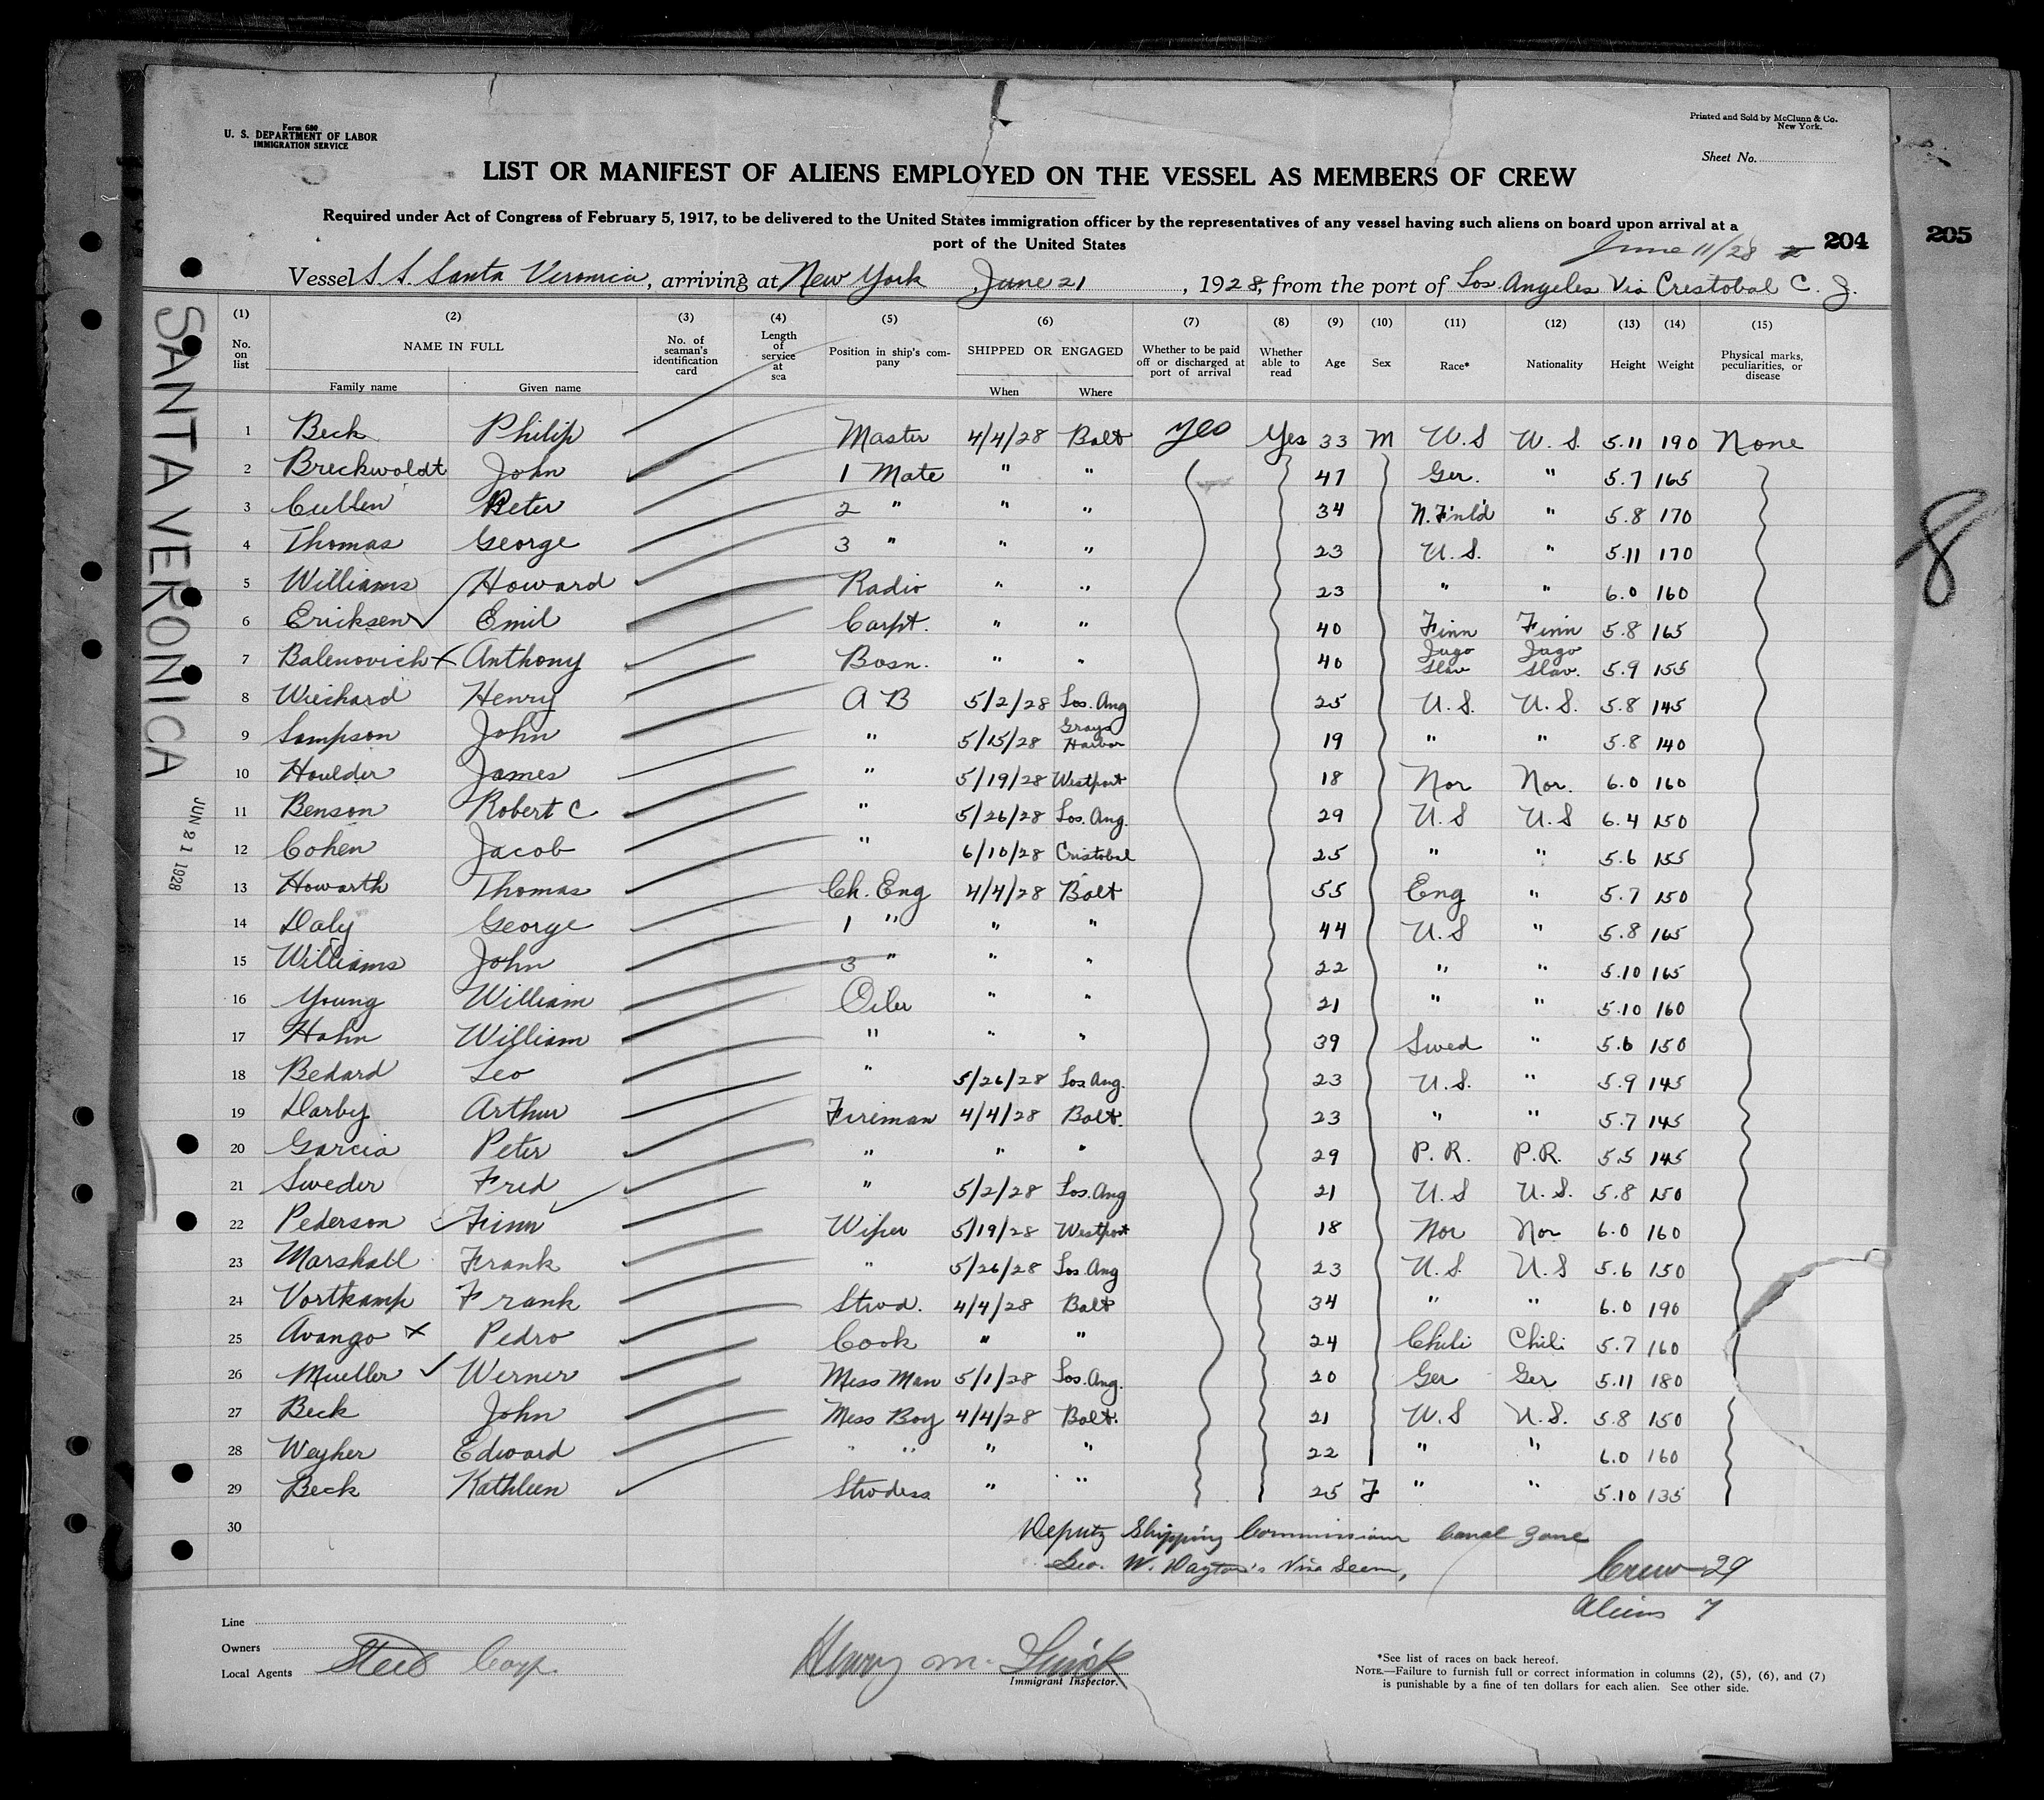 Form 680
U. S. DEPARTMENT OF LABOR
IMMIGRATION SERVICE
Printed and Sold by McClunn & Co.
New York.
Sheet No.
LIST OR MANIFEST OF ALIENS EMPLOYED ON THE VESSEL AS MEMBERS OF CREW
Required under Act of Congress of February 5, 1917, to be delivered to the United States immigration officer by the representatives of any vessel having such aliens on board upon arrival at a
port of the United States
June 11/28
204
205
Vessel S.S. Santa Veronica, arriving at New York, June 21, 1928, from the port of Los Angeles Via Crestobal C. Z.
(1) (2) (3) (4) (5) (6) (7) (8) (9) (10) (11) (12) (13) (14) (15)
No. on list NAME IN FULL No. of seaman's identification card Length of service at sea Position in ship's company SHIPPED OR ENGAGED Whether to be paid off or discharged at port of arrival Whether able to read Age Sex Race* Nationality Height Weight Physical marks, peculiarities, or disease
Family name Given name When Where
1 Beck Philip Master 4/4/28 Balt yes Yes 33 M U.S U.S. 5.11 190 None
2 Breckwoldt John 1 Mate " " 47 Ger. " 5.7 165
3 Cullen Peter 2 " " " 34 N.F'nl'd " 5.8 170
4 Thomas George 3 " " " 23 U.S. " 5.11 170
5 Williams Howard Radio " " 23 " " 6.0 160
6 Eriksen Emil Carpt. " " 40 Finn Finn 5.8 165
7 Balenovich x Anthony Bosn. " " 40 Jugo Slav Jugo Slav. 5.9 155
8 Wiechard Henry A B 5/2/28 Los. Ang 25 U.S. U.S. 5.8 145
9 Sampson John " 5/15/28 Grays Harbor 19 " " 5.8 140
10 Houlder James " 5/19/28 Westport 18 Nor Nor. 6.0 160
11 Benson Robert C " 5/26/28 Los. Ang. 29 U.S U.S 6.4 150
12 Cohen Jacob " 6/10/28 Cristobal 25 " " 5.6 155
13 Howarth Thomas Ch. Eng 4/4/28 Balt 55 Eng " 5.7 150
14 Daly George 1 " " " 44 U.S " 5.8 165
15 Williams John 3 " " " 22 " " 5.10 165
16 Young William Oiler " " 21 " " 5.10 160
17 Hahn William " " " 39 Swed " 5.6 150
18 Bedard Leo " 5/26/28 Los Ang. 23 U.S. " 5.9 145
19 Darby Arthur Fireman 4/4/28 Balt. 23 " " 5.7 145
20 Garcia Peter " " " 29 P.R. P.R. 5.5 145
21 Sweder Fred " 5/2/28 Los. Ang 21 U.S U.S. 5.8 150
22 Pederson Finn Wiper 5/19/28 Westport 18 Nor Nor 6.0 160
23 Marshall Frank " 5/26/28 Los Ang 23 U.S. U.S 5.6 150
24 Vortkamp Frank Strod. 4/4/28 Balt 34 " " 6.0 190
25 Avango x Pedro Cook " " 24 Chili Chili 5.7 160
26 Mueller Werner Mess Man 5/1/28 Los. Ang. 20 Ger Ger 5.11 180
27 Beck John Mess Boy 4/4/28 Balt. 21 U.S U.S. 5.8 150
28 Weyher Edward " " " " 22 " " 6.0 160
29 Beck Kathleen Strodess " " 25 F " " 5.10 135
30
Deputy Shipping Commissioner Canal Zone
Geo. W. Dayton's Visa Seen,
Crew 29
Aliens 7
Line
Owners
Local Agents Steel Corp.
Henry M.
Immigrant Inspector.
*See list of races on back hereof.
NOTE.—Failure to furnish full or correct information in columns (2), (5), (6), and (7)
is punishable by a fine of ten dollars for each alien. See other side.
SANTA VERONICA
JUN 21 1928
8